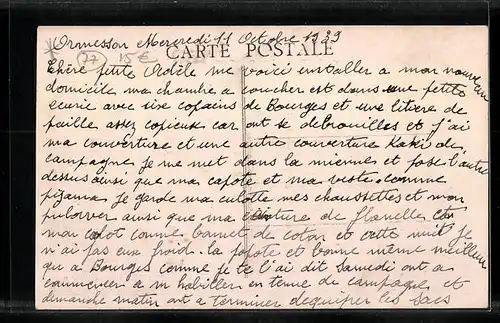 Ormesson Mercredi 11 Octobre 1939
77 15€
CARTE POSTALE
Chère petite Adèle me voici installer a mon nouveau
domicile ma chambre a coucher est dans une petite
ecurie avec six copains de Bourges et une litiere de
paille assez copieuse car ont se debrouilles et j'ai
ma couverture et une autre couverture Kaki de
campagne je me met dans la mienne et pose l'autre
dessus ainsi que ma capote et ma veste. comme
pijama je garde ma culotte mes chaussettes et mon
pulover ainsi que ma ceinture de flanelle et
mon calot comme bonnet de coton et cette nuit je
n'ai pas eux froid. la popote et bonne même meilleur
qu a Bourges comme je te l'ai dit Samedi ont a
commencer a m habiller en tenue de campagne et
dimanche matin ont a terminer d'equiper les sacs